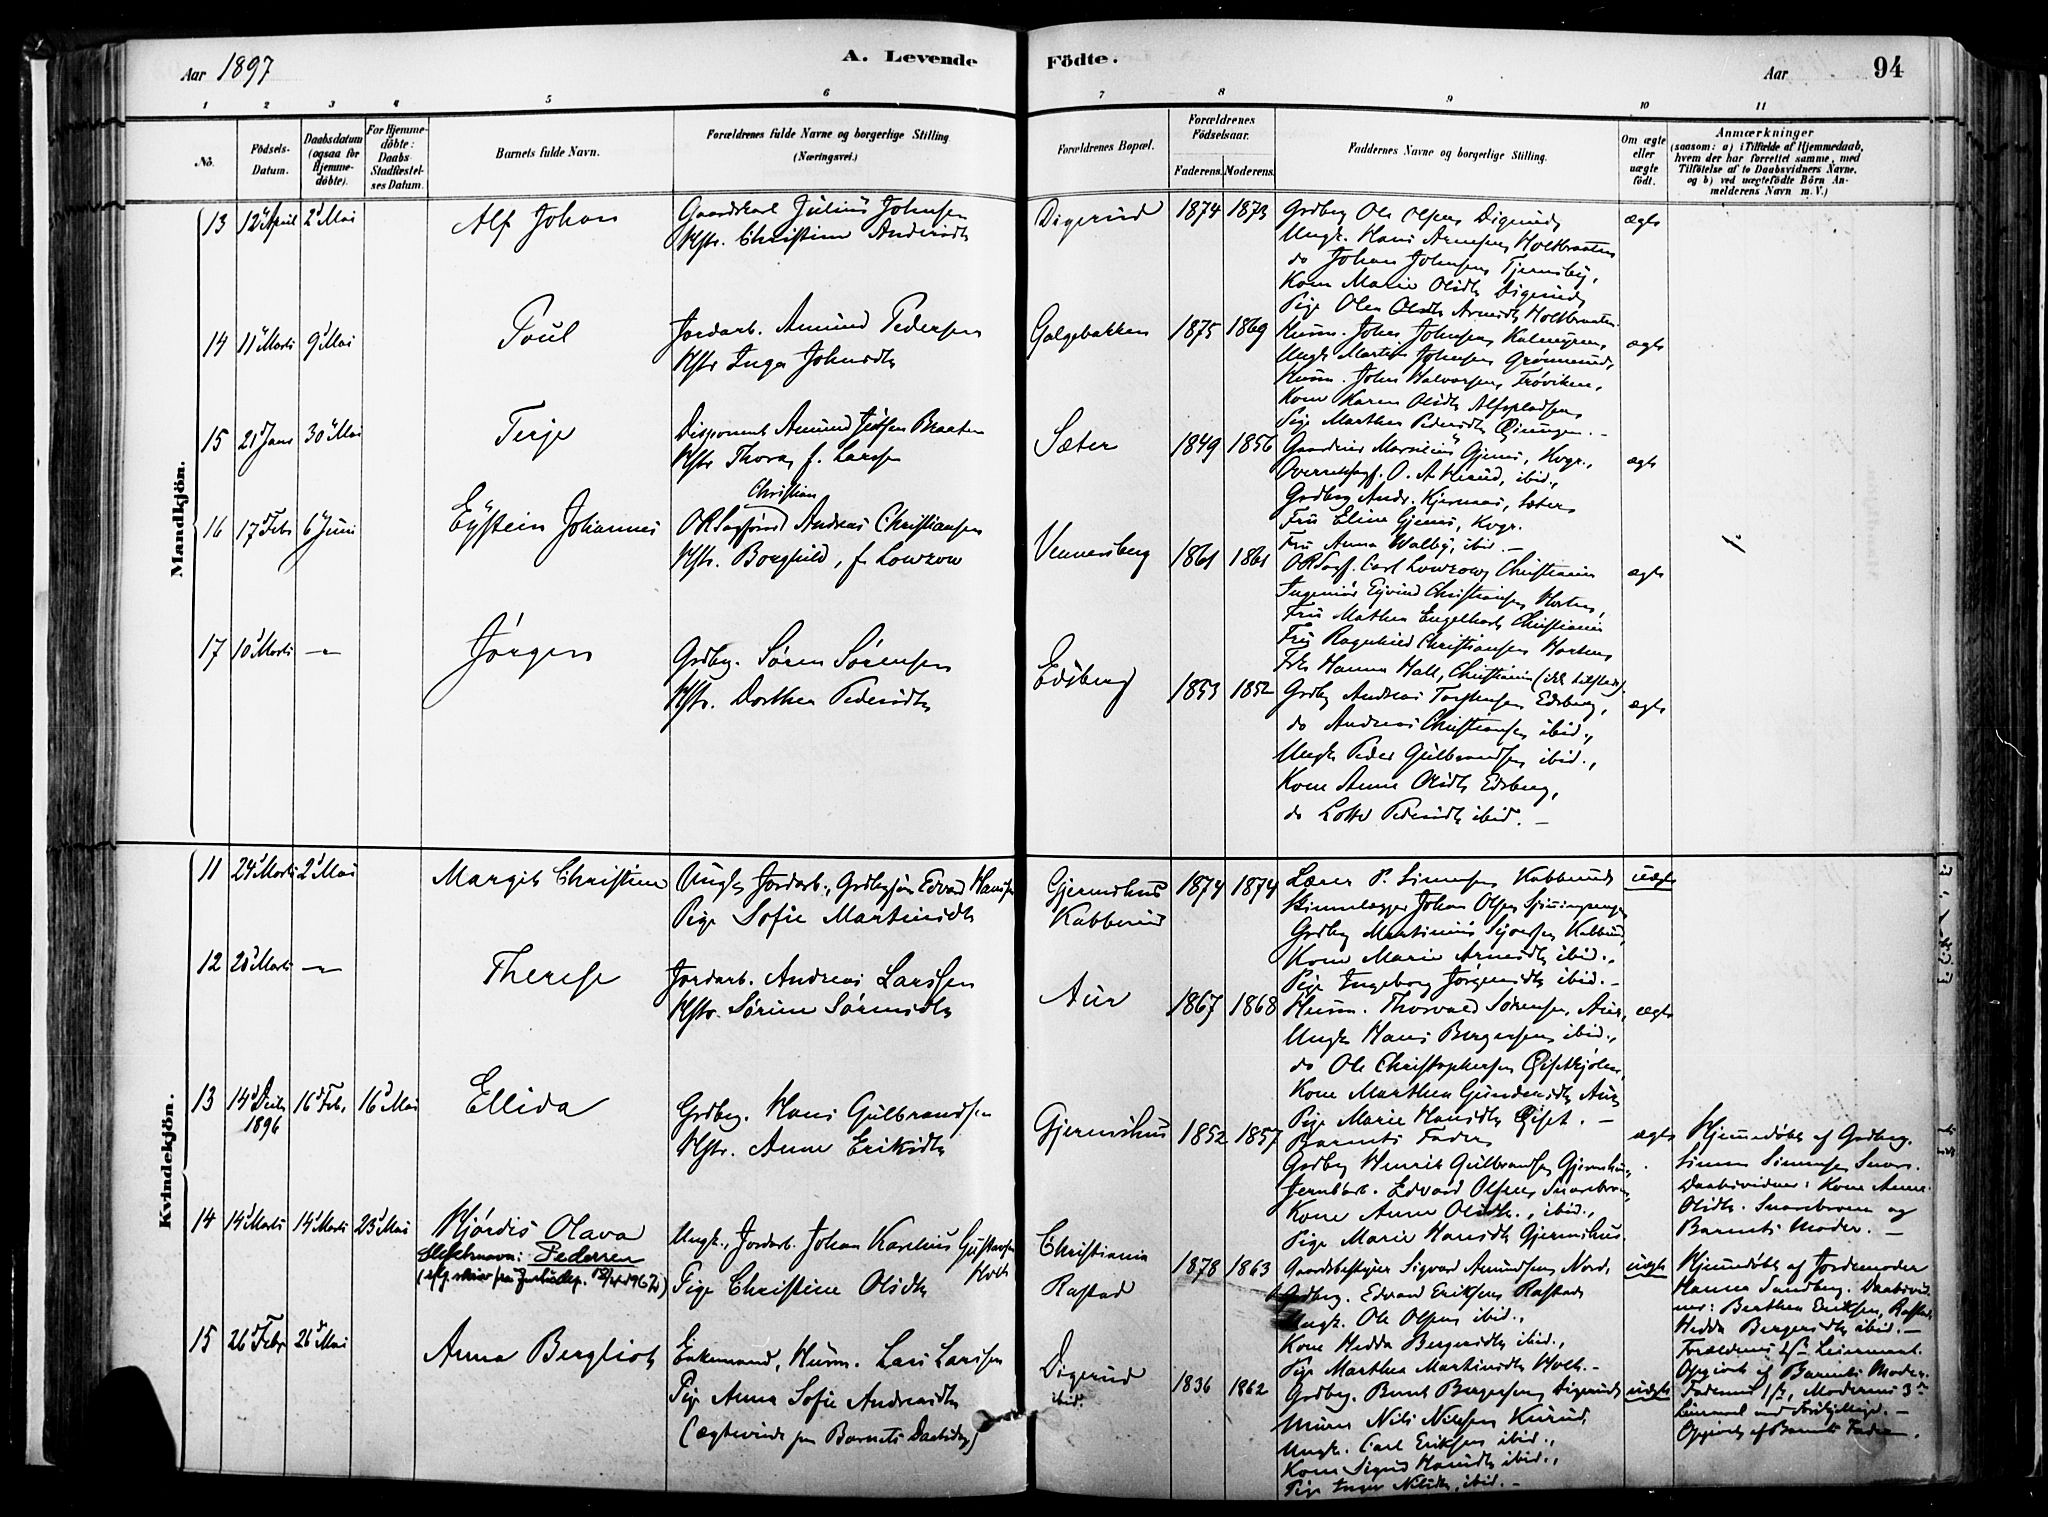 Aar 1897
A. Levende
Födte.
Aar
94
1 2 3 4 5 6 7 8 9 10 11
No.
Födsels-
Datum.
Daabsdatum
(ogsaa for
Hjemme-
döbte).
For Hjemme-
döbte:
Daabs-
Stadfæstel-
ses Datum.
Barnets fulde Navn.
Forældrenes fulde Navne og borgerlige Stilling
(Næringsvei.)
Forældrenes Bopæl.
Forældrenes
Födselsaar.
Faderens. Moderens.
Faddernes Navne og borgerlige Stilling.
Om ægte
eller
uægte
født.
Anmærkninger
(saasom: a) i Tilfælde af Hjemmedaab,
hvem der har forrettet samme, med
Tilföielse af to Daabsvidners Navne,
og b) ved uægtefödte Börn An-
melderens Navn m. V.)
Mandkjön.
13 12 April 2 Mai
Alf Johan
Gaardskarl Julius Johnsen
Hstr. Christine Andersdtr
Digerud
1874 1873
Grdbrg Ole Olsen Digerud
Ungk. Hans Arnesen Holtbraaten
do Johan Johnsen Tjernsby,
Kone Marie Olsdtr Digerud
Pige Olea Arnesdtr Holtbraaten
ægte
14 11 Marts 9 Mai
Poul
Jordarb. Amund Pedersen
Hstr Inga Johnsdtr
Galgebakken
1875 1869
Husm. Johan Johnsen
Ungk Martin Johnsen Grønnerud,
Husm. John Halvorsen, Frøviken,
Kone Karen Olsdtr Alfspladsen
Pige Marthea Pedersdtr
ægte
15 21 Jans 30 Mai
Terje
Disponent Amund Braaten
Hstr Thora, f. Larsen
Sæter
1849 1856
Gjems, Kvgr.,
O. Akerud, ibid.,
Grdbrg Andr. Kjernaas, Sæter
Fru Eline Gjems, Kvgr.
Fru Anna Walby, ibid. –
ægte
16 17 Febr 6 Juni
Eystein Johannes
Christian
ORSagfører Andreas Christiansen
Hstr. Borghild, f. Lowzow
Vennersberg
1861 1861
ORSagf. Carl Lowzow, Christiania
Ingeniør Eyvind Christiansen Horten,
Fru Mathea Engelhart Christiania
Fru Ragnhild Christiansen Horten
Frk Hanna Hall, Christiania (ikke tilstede).
ægte
17 10 Marts –"–
Jörgen
Grdbrg. Søren Sørensen
Hstr. Dorthea Pedersdtr
Edsberg
1853 1852
Grdbrg Andreas Torstensen Edsberg,
do Andreas Christiansen ibid.,
Ungk Peder Gulbrandsen ibid.,
Kone Anne Olsdtr Edsberg,
do Lotte Pedersdtr ibid. –
ægte
Kvindekjön.
11 24 Marts 2 Mai
Margit Christine
Ungk, Jordarb., Grdbrgsøn Edvard Hansen
Pige Sofie Martinsdtr
Gjermshus
Kabberud
1874 1874
Lærer P. Simensen Kabberud
Skinnelægger Johan Olsen
Grdbrg Martinius Syversen Kabberud,
Kone Marie Arnesdtr ibid.,
Pige Ingeborg Jørgensdtr ibid. –
uægte
12 28 Marts –"–
Therese
Jordarb. Andreas Larssen
Hstr. Sørine Sørensdtr
Aur
1867 1868
Husm. Thorvald Sørensen, Aur,
Ungk Hans Bergersen ibid.,
do Ole Christophersen
Kone Marthea Gundersdtr Aur
Pige Marie Hansdtr –
ægte
13 14 Decbr 1896 16 Feb. 16 Mai
Ellida
Grdbrg. Hans Gulbrandsen
Hstr. Anne Eriksdtr
Gjermshus
1852 1857
Barnets Fader
Grdbrg Henrik Gulbrandsen Gjermshus,
Jernbarb. Edvard Olsen Snarebroen,
Kone Anne Olsdtr., ibid.,
Pige Marie Hansdtr Gjermshus.
ægte
Hjemmedøbt af Grdbrg.
Simen Simensen Snare.
Daabsvidner: Kone Anne
Olsdtr. Snarebroen og
Barnets Moder. –
14 14 Marts 14 Marts 23 Mai
Hjørdis Olava
Slektsnavn: Pedersen
Ungk., Jordarb. Johan Karelius Gustavsen
Holt
Pige Christine Olsdtr
Christiania
Rastad
1878 1863
Gaardsbestyrer Sigvard Amundsen Nord,
Grdbrg. Edvard Eriksen Rastad
Ungk. Ole Olsen ibid.,
Kone Hedda Bergersdtr ibid.,
Pige Marthea Martinsdtr Holt. –
uægte
Hjemmedøbt af Jordemoder
Hanna Sundberg. Daabsvid-
ner: Berthea Eriksen, Rastad,
Hedda Bergersdtr ibid. –
Forældrenes 1ste Leiermaal.
Opgivet af Barnets Moder.
15 26 Febr 26 Mai
Anna Bergliot
Enkemand, Husm. Lars Larssen
Pige Anna Sofie Andreasdtr
(ægteviede paa Barnets Daabsdag)
Digerud
ibid.
1836 1862
Grdbrg. Bernt Bergersen Digerud
Murer Nils Nilssen Kurud
Ungk. Carl Eriksen ibid.,
Kone Sigrid Hansdtr ibid.,
Pige Inger Nilsdtr, ibid. –
uægte
Faderens 1ste, Moderens 3die
Leiermaal med Forskjellige. –
Opgivet af Barnets Fader.